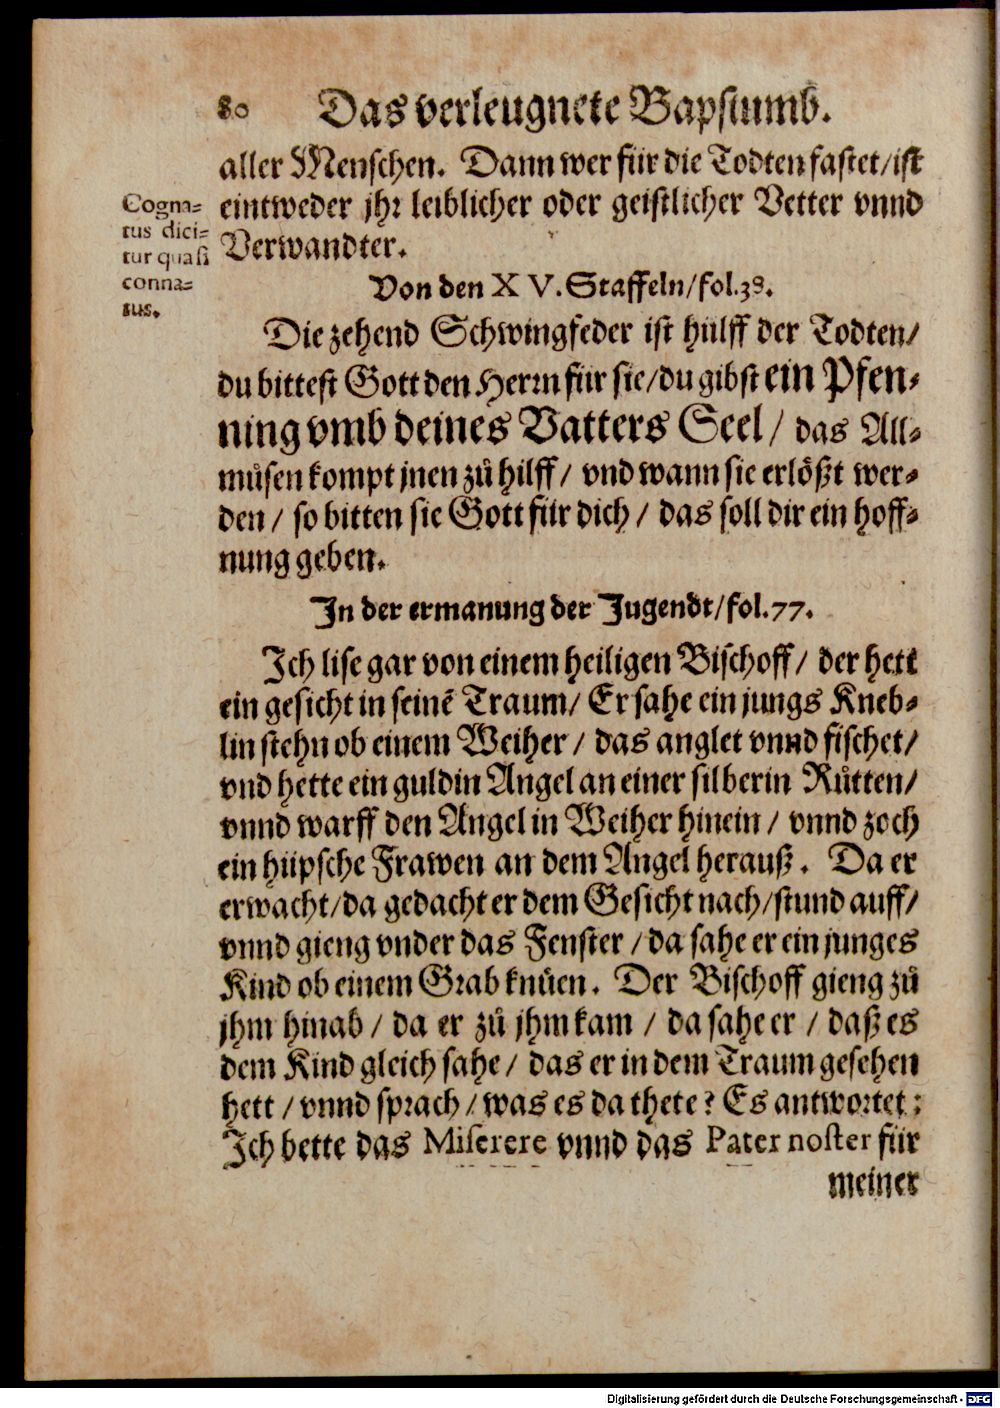 80 Das verleugnete Bapstumb.
aller Menschen. Dann wer für die Todten fastet/ist
eintweder jhr leiblicher oder geistlicher Vetter vnnd
Verwandter.
Cogna=
tus dici=
tur quasi
conna=
tus.
Von den XV. Staffeln/fol.38.
Die zehend Schwingfeder ist hülff der Todten/
du bittest Gott den Herrn für sie/du gibst ein Pfen=
ning vmb deines Vatters Seel/ das All=
muͦsen kompt jnen zuͦ hilff/ vnd wann sie erlößt wer=
den/ so bitten sie Gott für dich/ das soll dir ein hoff=
nung geben.
In der ermanung der Jugendt/fol.77.
Ich lise gar von einem heiligen Bischoff/ der hett
ein gesicht in seinē Traum/ Er sahe ein jungs Kneb=
lin stehn ob einem Weiher/ das anglet vnnd fischet/
vnd hette ein guldin Angel an einer silberin Ruͦtten/
vnnd warff den Angel in Weiher hinein/ vnnd zoch
ein hüpsche Frawen an dem Angel herauß. Da er
erwacht/da gedacht er dem Gesicht nach/stund auff/
vnnd gieng vnder das Fenster/da sahe er ein junges
Kind ob einem Grab knüen. Der Bischoff gieng zuͦ
jhm hinab/ da er zuͦ jhm kam/ da sahe er/ daß es
dem Kind gleich sahe/ das er in dem Traum gesehen
hett/vnnd sprach/was es da thete? Es antwortet:
Ich bette das Miserere vnnd das Pater noster für
meiner
Digitalisierung gefördert durch die Deutsche Forschungsgemeinschaft - DFG